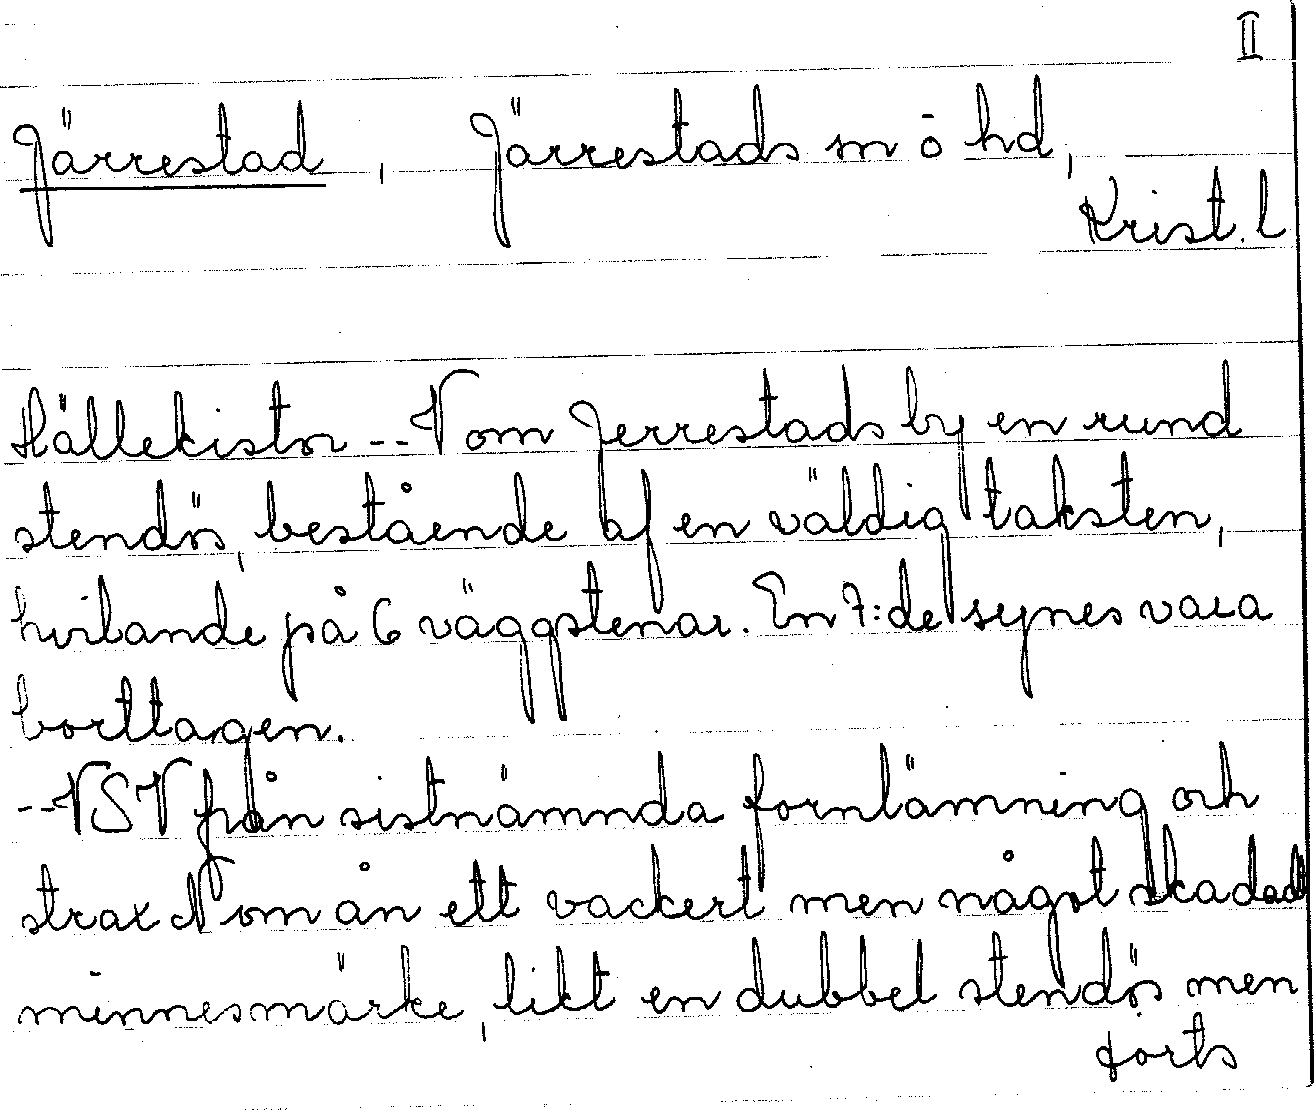 II
Järrestad, Järrestads sn ö hd,
Krist. l
Hällekistor -- N om Jerrestads by en rund
stendös, bestående af en väldig taksten,
hvilande på 6 väggstenar. En 7:de synes vara
borttagen.
-- VSV från sistnämnda fornlämning och
strax N om ån ett vackert men något skadadt
minnesmärke, likt en dubbel stendös men
forts